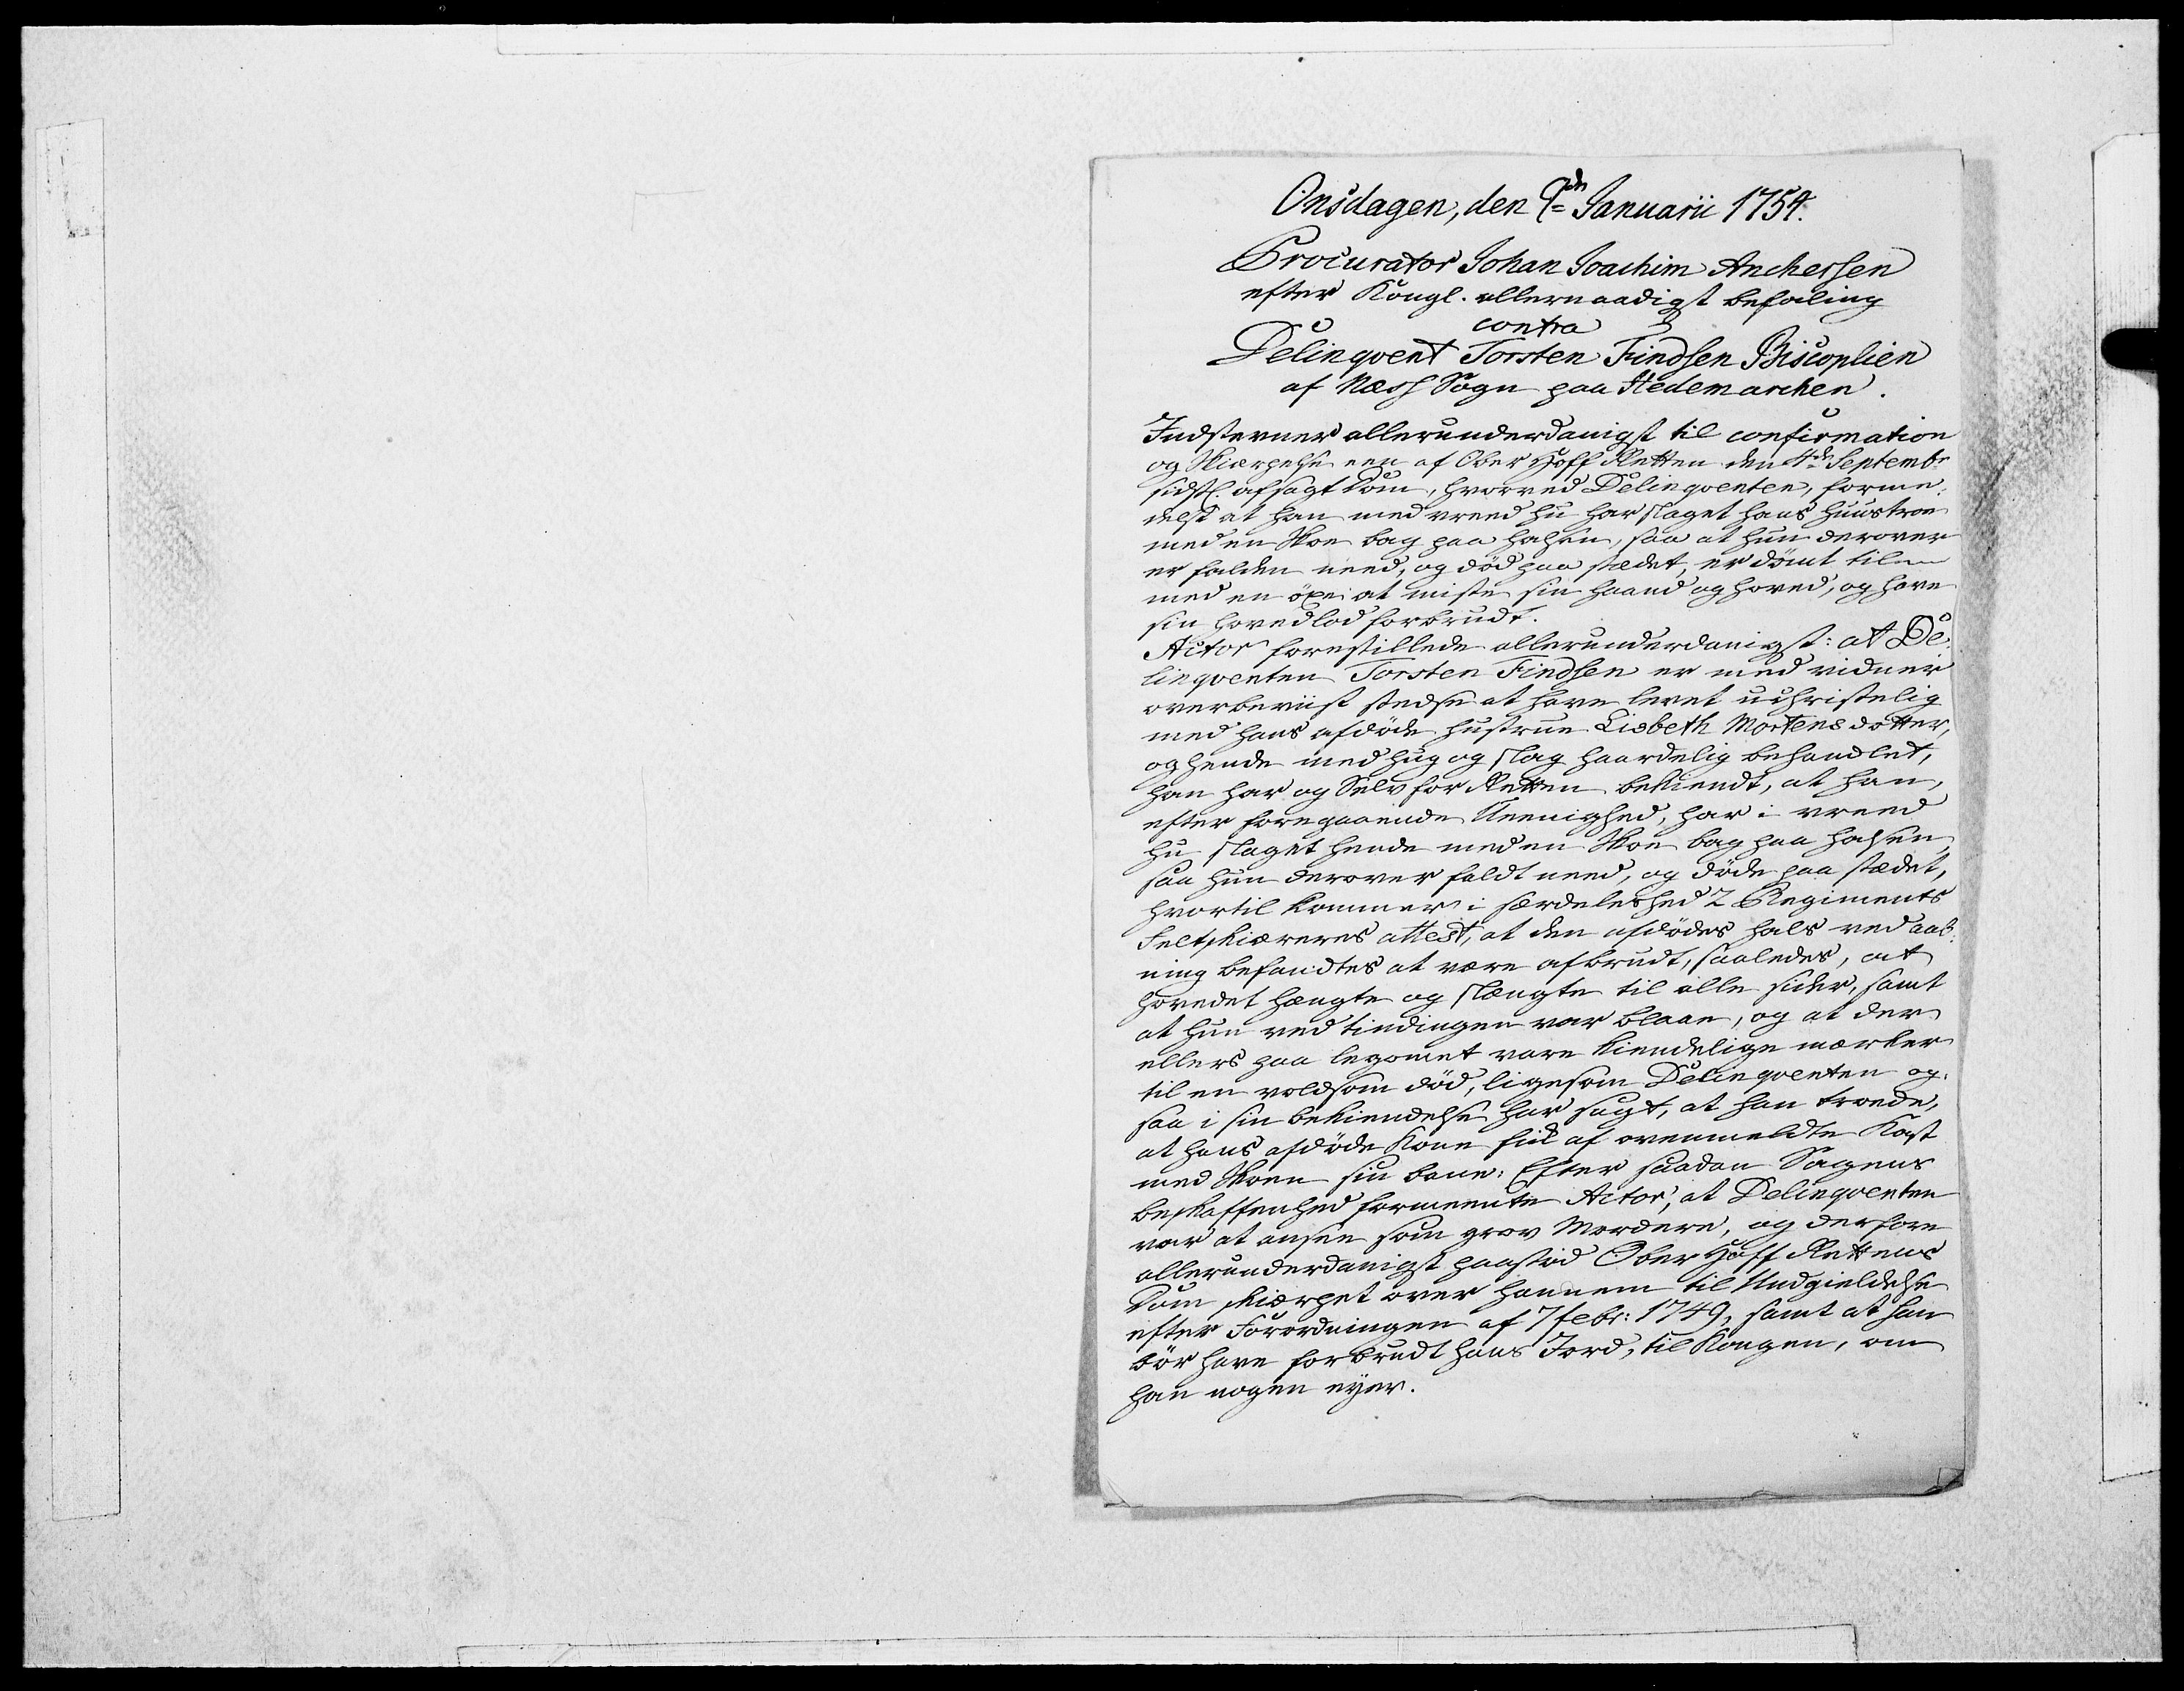 Onsdagen, den 9de Januarii 1754.
Procurator Johan Joachim Anchersen
efter Kongl. allernaadigst befaling
contra
Delinqvent Torsten Findsen Biscoplien
af Næss Sogn paa Hedemarchen.
Indsterner allerunderdanigst til confirmation
og Skiærpelse een af Ober Hoff Retten den 4de Septembr
sidstl. afsagt Dom, hvorved Delinqventen, forme-
delst at han med vreed hu har slaget hans huustroe
med en Skoe bag paa halsen, saa at hun derover
er falden need, og död paa stædet, er dömt til
med en öxe at miste sin haand og hoved, og have
sin hovedlod forbrudt.
Actor forestillede allerunderdanigst: at De-
linqventen Torsten Findsen er med vidner
overbeviist stedse at have levet uchristelig
med hans afdöde hustrue Lisbeth Mortensdotter,
og hende med hug og slag haardelig behandlet,
han har og Selv for Retten bekiendt, at han,
efter foregaaende Ueenighed, har i vreed
hu slaget hende med en Skoe bag paa halsen,
saa hun derover faldt need, og döde paa stædet,
hvortil kommer i særdeleshed 2 Regiments
Feltskiæreres attest, at den afdödes hals ved aab-
ning befandtes at være afbrudt, saaledes, at
hovedet hængte og slængte til alle sider, samt
at hun ved tindingen var blaae, og at der
ellers paa legomet vare kiendelige mærker
til en voldsom död, ligesom Delinqventen og-
saa i sin bekiendelse har sagt, at han troede,
at hans afdöde Kone fik af ovenmeldte Kast
med Skoen sin bane: Efter saadan Sagens
beskaffenhed formeente Actor, at Delinqventen
var at ansee som grov Mordere, og derfore
allerunderdanigst paastod Ober Hoff Rettens
Dom skiærpet over hannem til Undgieldelse
efter Forordningen af 7 febr: 1749, samt at han
bör have forbrudt hans Jord, til Kongen, om
han nogen eyer.